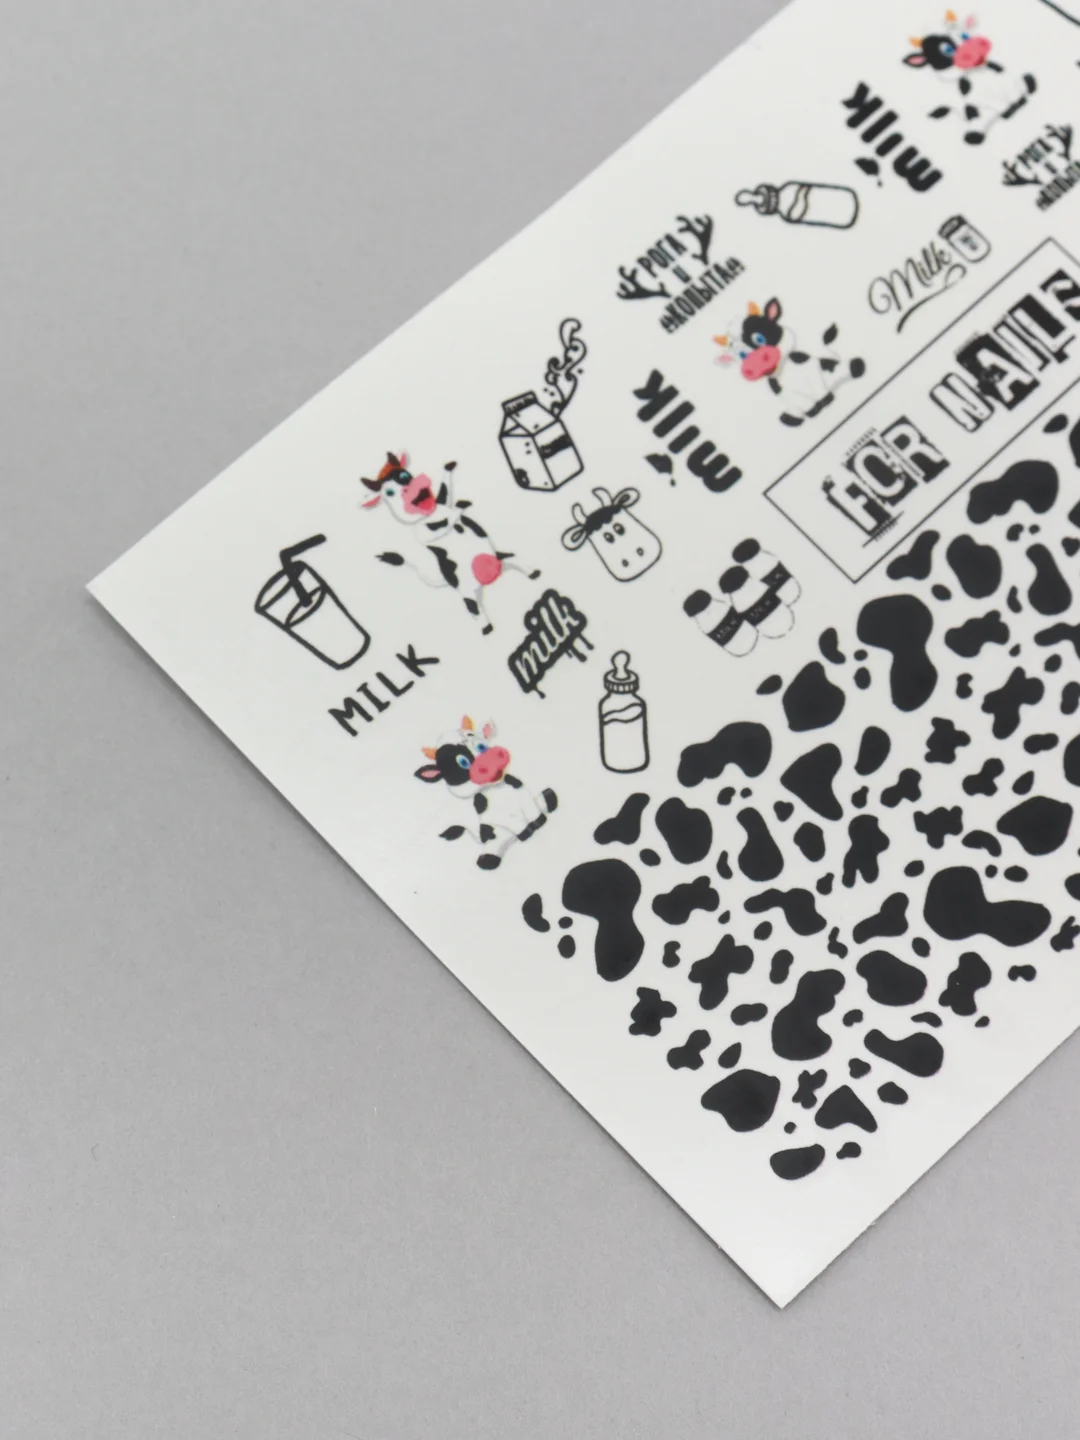 milk
РОГА
И
КОПЫТА
РОГА
И
КОПЫТА
Milk
FOR NAILS
milk
milk
MILK